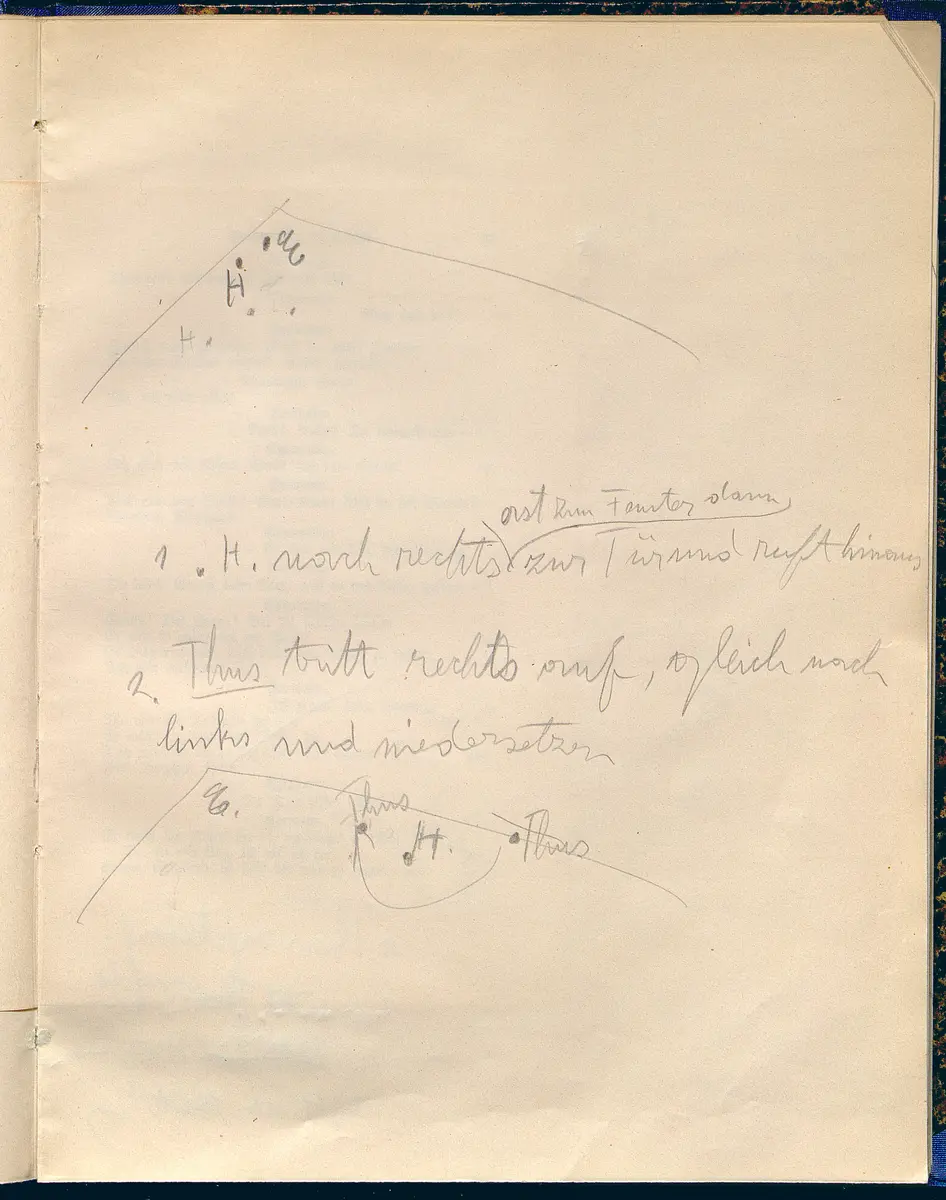 H
H.
erst zum Fenster dann
1. H. nach rechts zur Tür und ruft hinaus
2. Thus tritt rechts auf, gleich nach
links und niedersetzen
Thus
H.
Thus